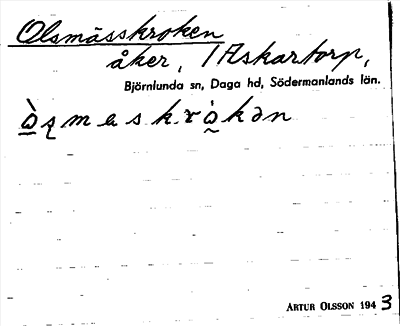 Olsmässkroken
åker, 1 Askartorp,
Björnlunda sn, Daga hd, Södermanlands län.
ARTUR OLSSON 1943